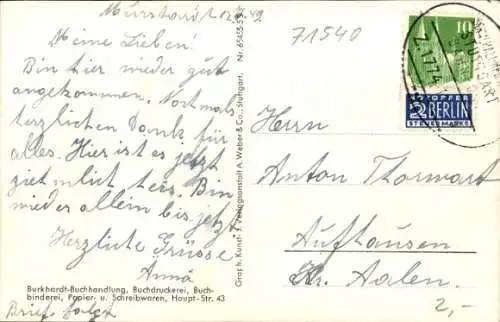 Murrhardt
Meine Lieben!
Bin hier wieder gut
angekommen. Nochmals
herzlichen Dank für
alles. Hier ist es jetzt
ziemlich leer. Bin
wieder allein bis jetzt.
Herzliche Grüsse
Anna
Brief folgt
Burkhardt-Buchhandlung, Buchdruckerei, Buch-
binderei, Papier- u. Schreibwaren, Haupt-Str. 43
Graph. Kunst- u. Verlagsanstalt A. Weber & Co., Stuttgart,
71540
10
NOTOPFER
2 BERLIN
STEUERMARKE
Herrn
Anton Thorwart
Aufhausen
Kr. Aalen.
2,-